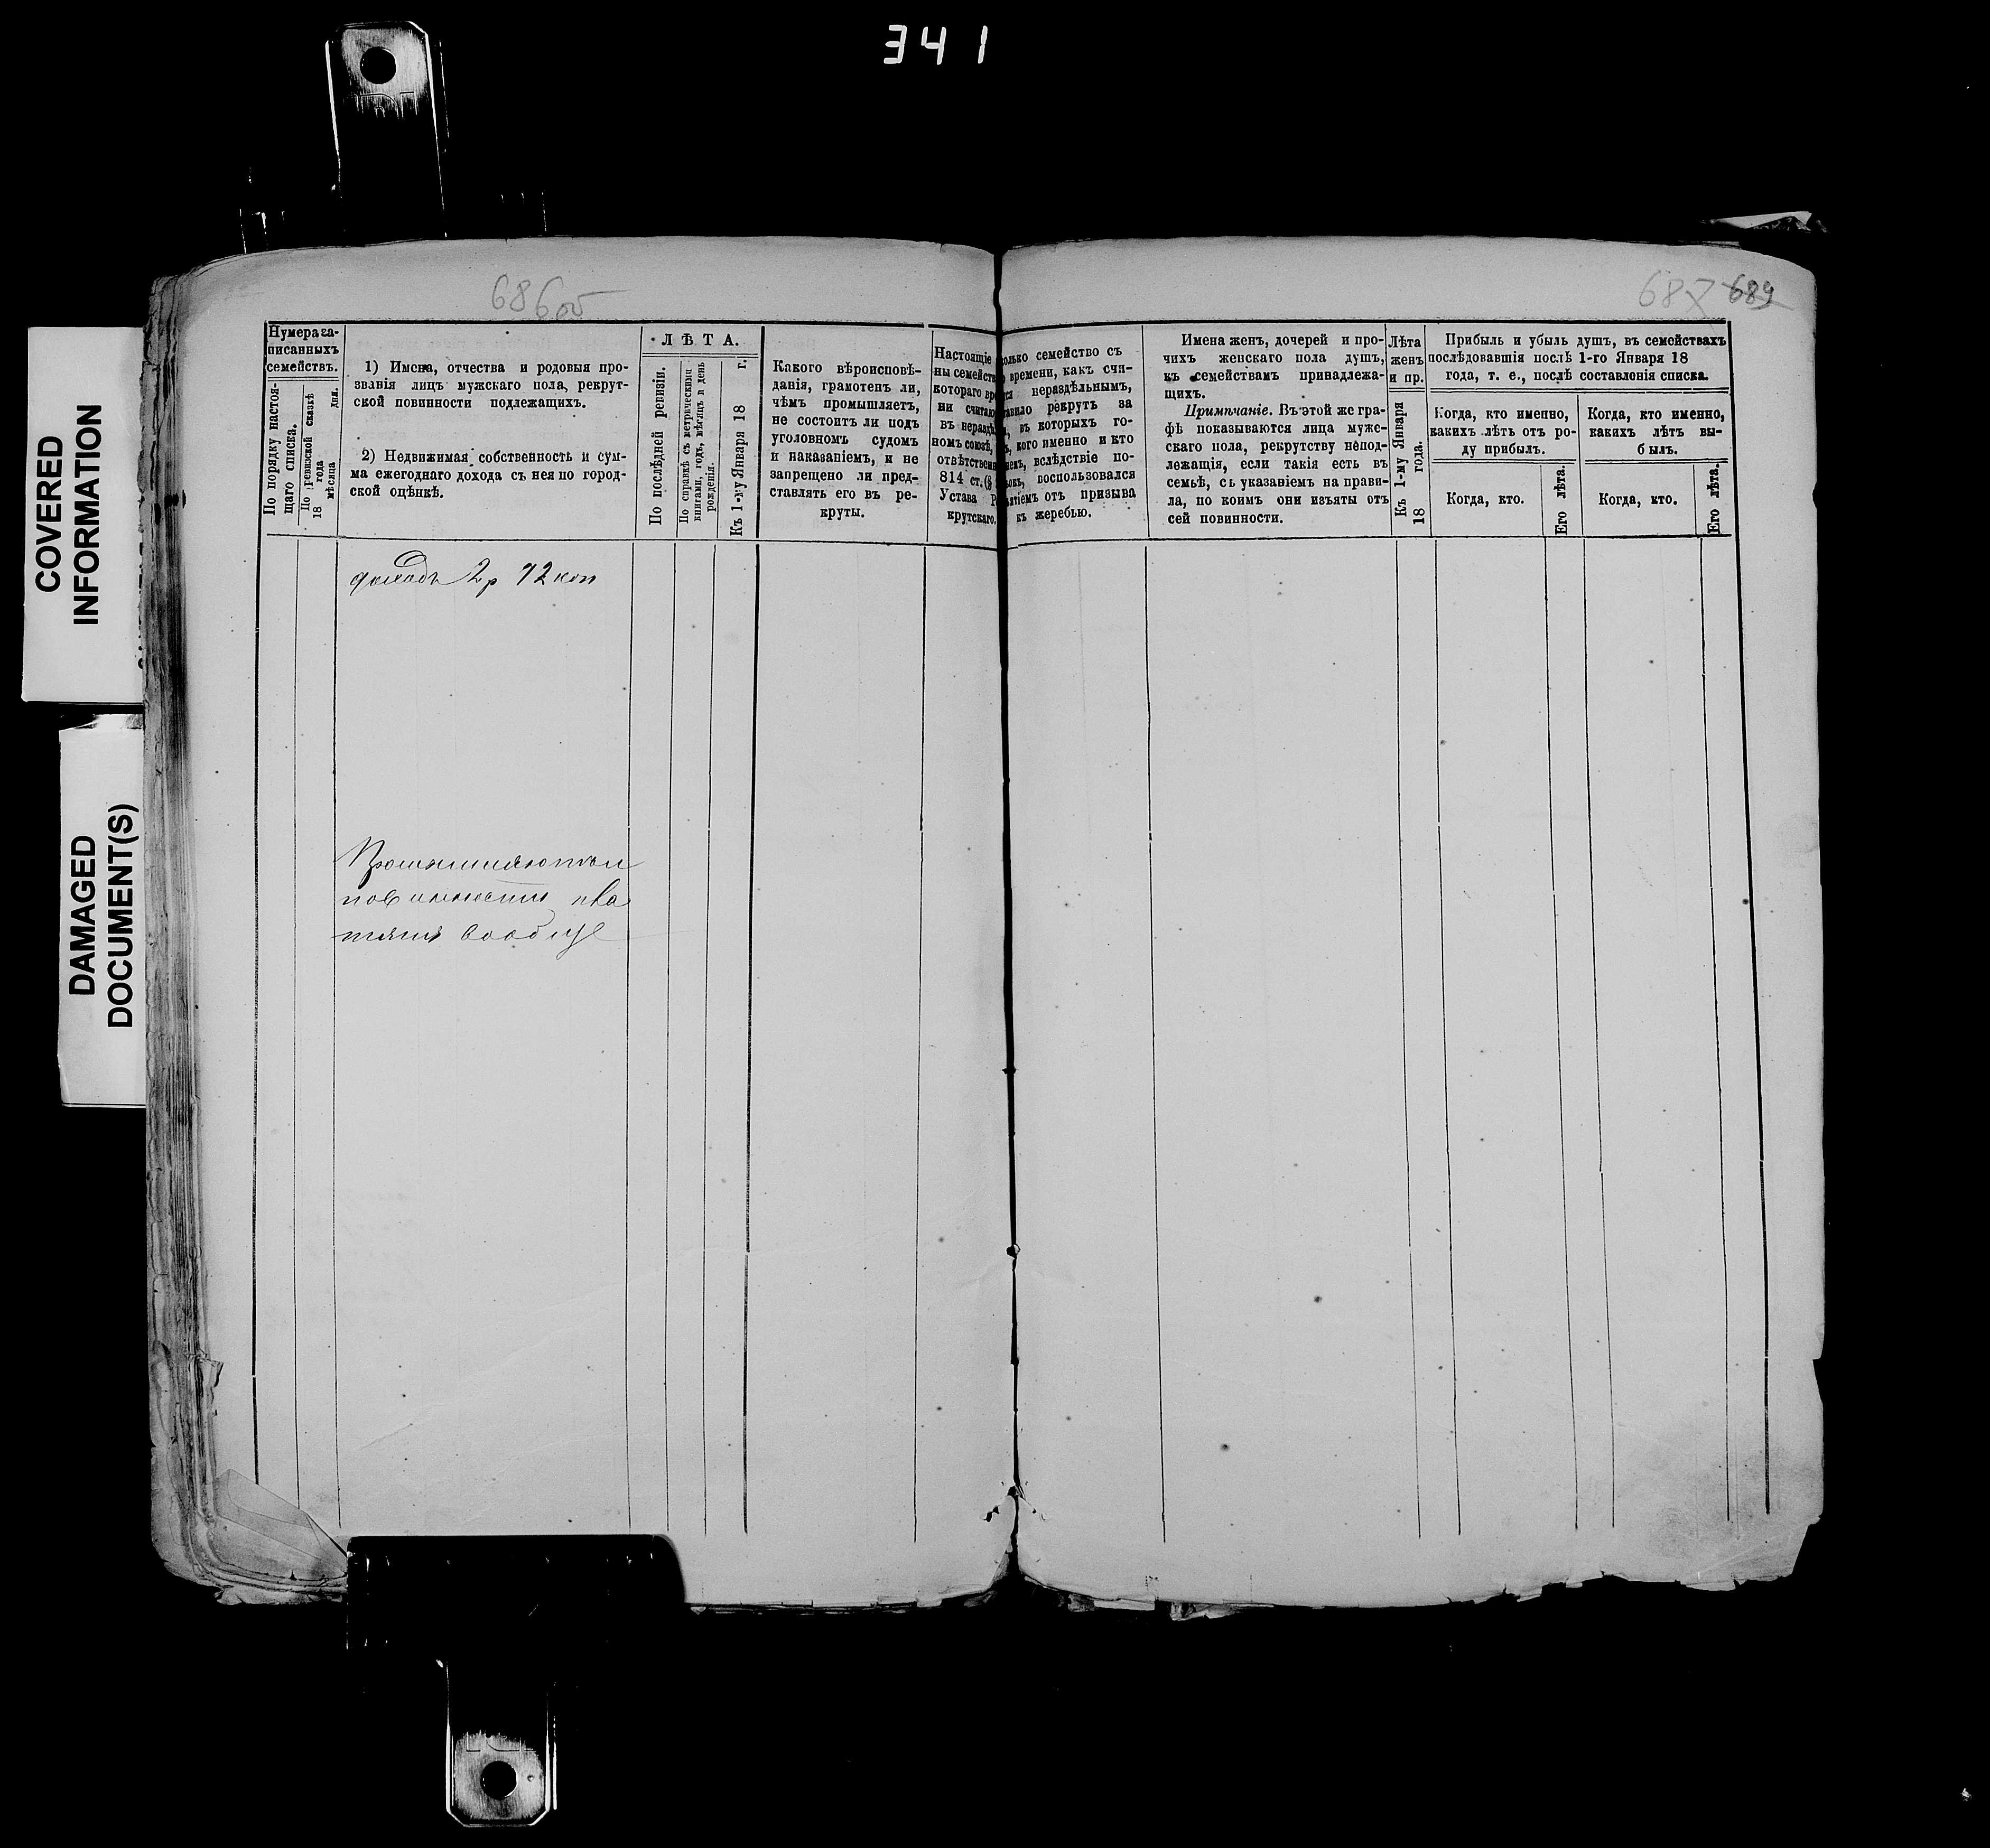 341
COVERED
INFORMATION
DAMAGED
DOCUMENT(S)
686 об
687 689
Нумера за-
писанныхъ
семействъ.
По порядку настоя-
щаго списка.
По ревизской сказкѣ
18 года
мѣсяца дня.
1) Имена, отчества и родовыя про-
званія лицъ мужскаго пола, рекрут-
ской повинности подлежащихъ.
2) Недвижимая собственность и сум-
ма ежегоднаго дохода съ нея по город-
ской оцѣнкѣ.
ЛѢТА.
По послѣдней ревизіи.
По справкѣ съ метрическими
книгами, годъ, мѣсяцъ и день
рожденія.
Къ 1-му Января 18 г.
Какого вѣроисповѣ-
данія, грамотенъ ли,
чѣмъ промышляетъ,
не состоитъ ли подъ
уголовномъ судомъ
и наказаніемъ, и не
запрещено ли пред-
ставлять его въ ре-
круты.
Настоящіе
ны семейств
котораго вре
ни считаю
въ неразд
номъ союзѣ,
отвѣтственн
814 ст. (§
Устава Р
крутскаго.
олько семейство съ
времени, какъ счи-
нераздѣльнымъ,
тавило рекрутъ за
въ которыхъ го-
кого именно и кто
вслѣдствіе по-
воспользовался
ятіемъ отъ призыва
къ жеребью.
Имена женъ, дочерей и про-
чихъ женскаго пола душъ,
къ семействамъ принадлежа-
щихъ.
Примѣчаніе. Въ этой же гра-
фѣ показываются лица муже-
скаго пола, рекрутству непод-
лежащія, если такія есть въ
семьѣ, съ указаніемъ на прави-
ла, по коимъ они изъяты отъ
сей повинности.
Лѣта
женъ
и пр.
Къ 1-му Января
18 года.
Прибыль и убыль душъ, въ семействахъ
послѣдовавшія послѣ 1-го Января 18
года, т. е., послѣ составленія списка.
Когда, кто именно,
какихъ лѣтъ отъ ро-
ду прибылъ.
Когда, кто.
Его лѣта.
Когда, кто именно,
какихъ лѣтъ вы-
былъ.
Когда, кто.
Его лѣта.
доходъ 2р 72 коп
повинности пла
тятъ вообще